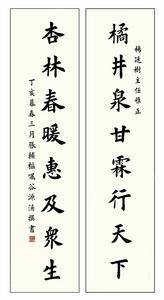 樹主任雅正
橘井泉甘霖行天下
杏林春暖惠及衆生
丁亥暮春三月張輔囑谷源撰書